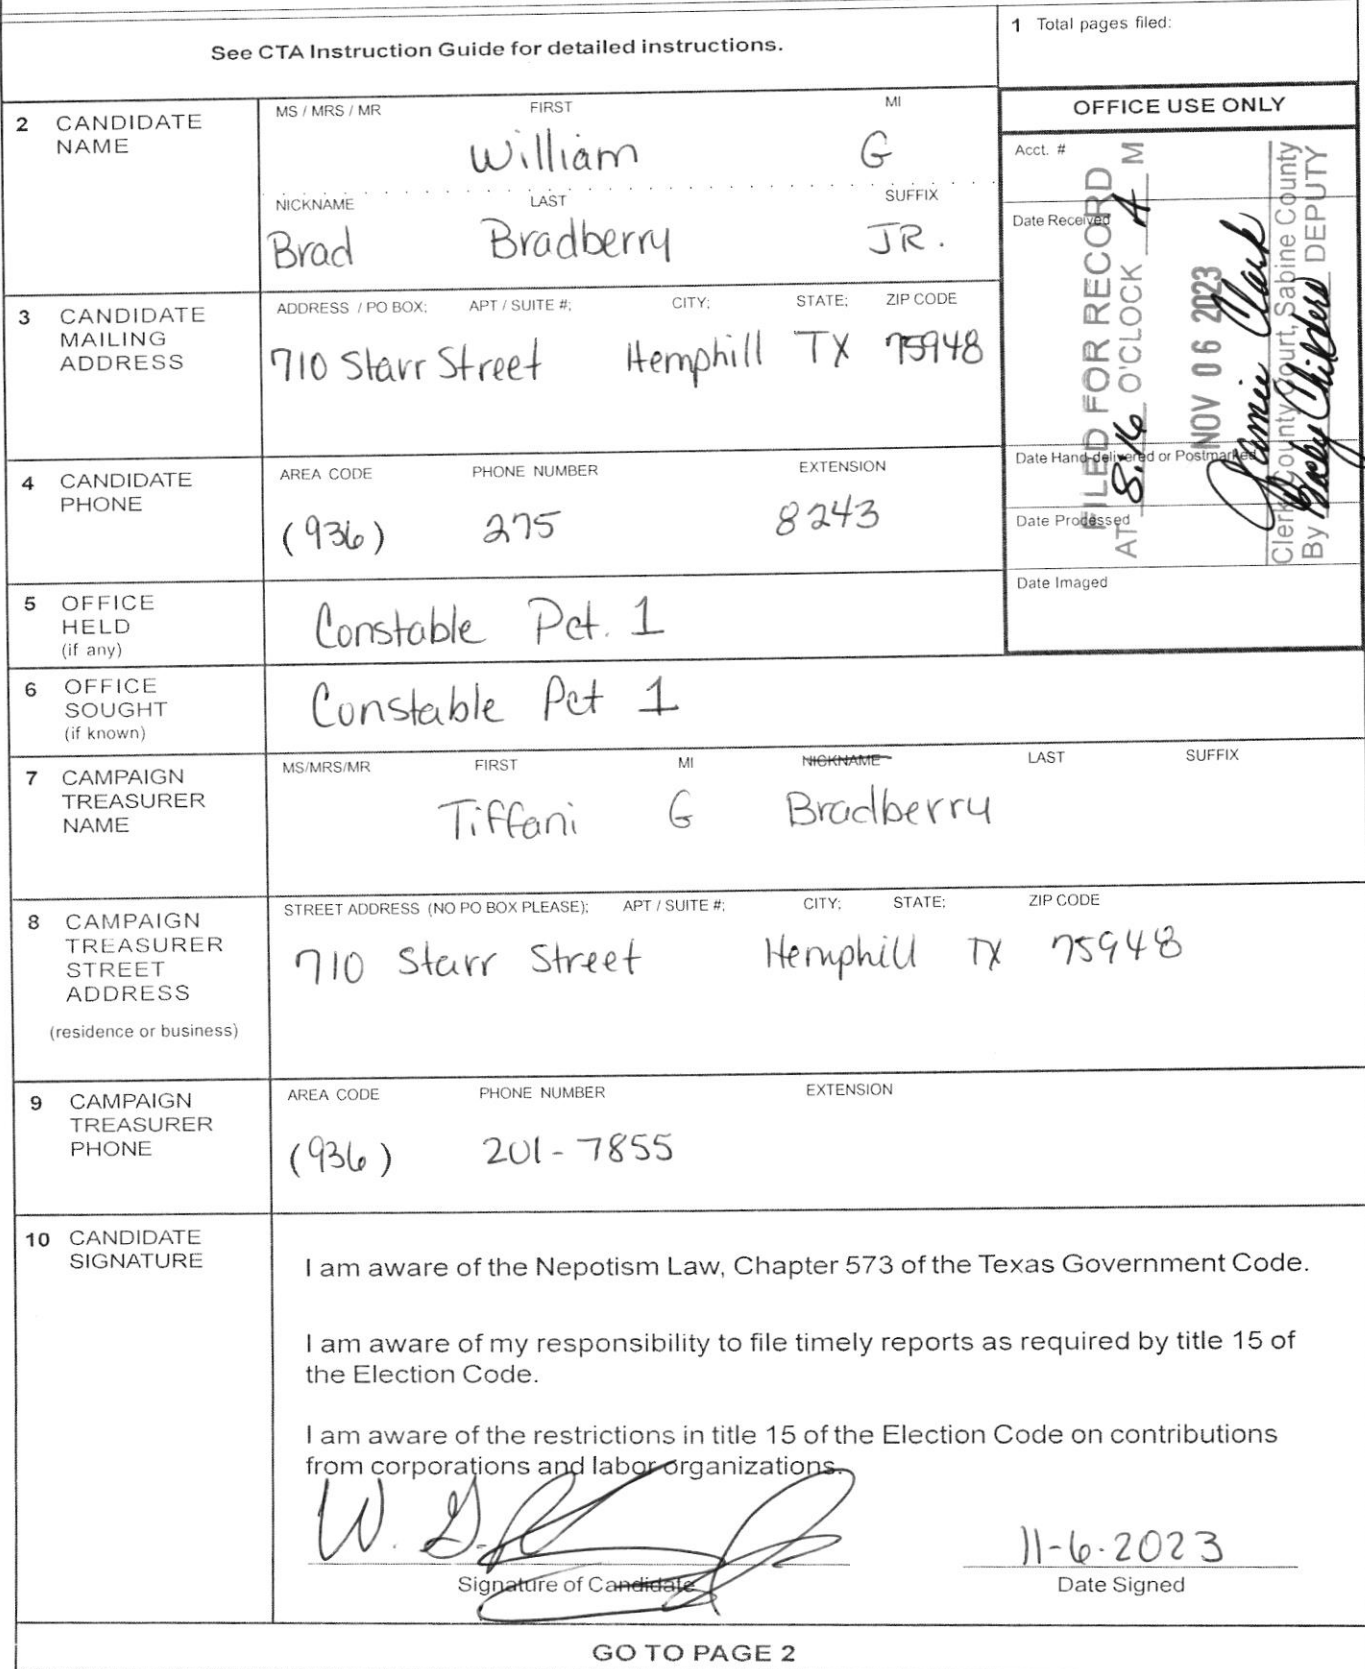 See CTA Instruction Guide for detailed instructions.
1 Total pages filed:
2 CANDIDATE NAME
MS / MRS / MR FIRST MI
William G
NICKNAME LAST SUFFIX
Brad Bradberry JR.
OFFICE USE ONLY
Acct. #
Date Received
Date Hand-delivered or Postmarked
Date Processed
Date Imaged
FILED FOR RECORD
AT 8:16 O'CLOCK A M
NOV 06 2023
Jamie Clark
Clerk County Court, Sabine County
By Becky Childers DEPUTY
3 CANDIDATE MAILING ADDRESS
ADDRESS / PO BOX; APT / SUITE #; CITY; STATE; ZIP CODE
710 Starr Street Hemphill TX 75948
4 CANDIDATE PHONE
AREA CODE PHONE NUMBER EXTENSION
(936) 275 8243
5 OFFICE HELD (if any)
Constable Pct. 1
6 OFFICE SOUGHT (if known)
Constable Pct 1
7 CAMPAIGN TREASURER NAME
MS/MRS/MR FIRST MI NICKNAME LAST SUFFIX
Tiffani G Bradberry
8 CAMPAIGN TREASURER STREET ADDRESS
(residence or business)
STREET ADDRESS (NO PO BOX PLEASE); APT / SUITE #; CITY; STATE; ZIP CODE
710 Starr Street Hemphill TX 75948
9 CAMPAIGN TREASURER PHONE
AREA CODE PHONE NUMBER EXTENSION
(936) 201-7855
10 CANDIDATE SIGNATURE
I am aware of the Nepotism Law, Chapter 573 of the Texas Government Code.
I am aware of my responsibility to file timely reports as required by title 15 of
the Election Code.
I am aware of the restrictions in title 15 of the Election Code on contributions
from corporations and labor organizations.
W. G.
11-6-2023
Signature of Candidate Date Signed
GO TO PAGE 2